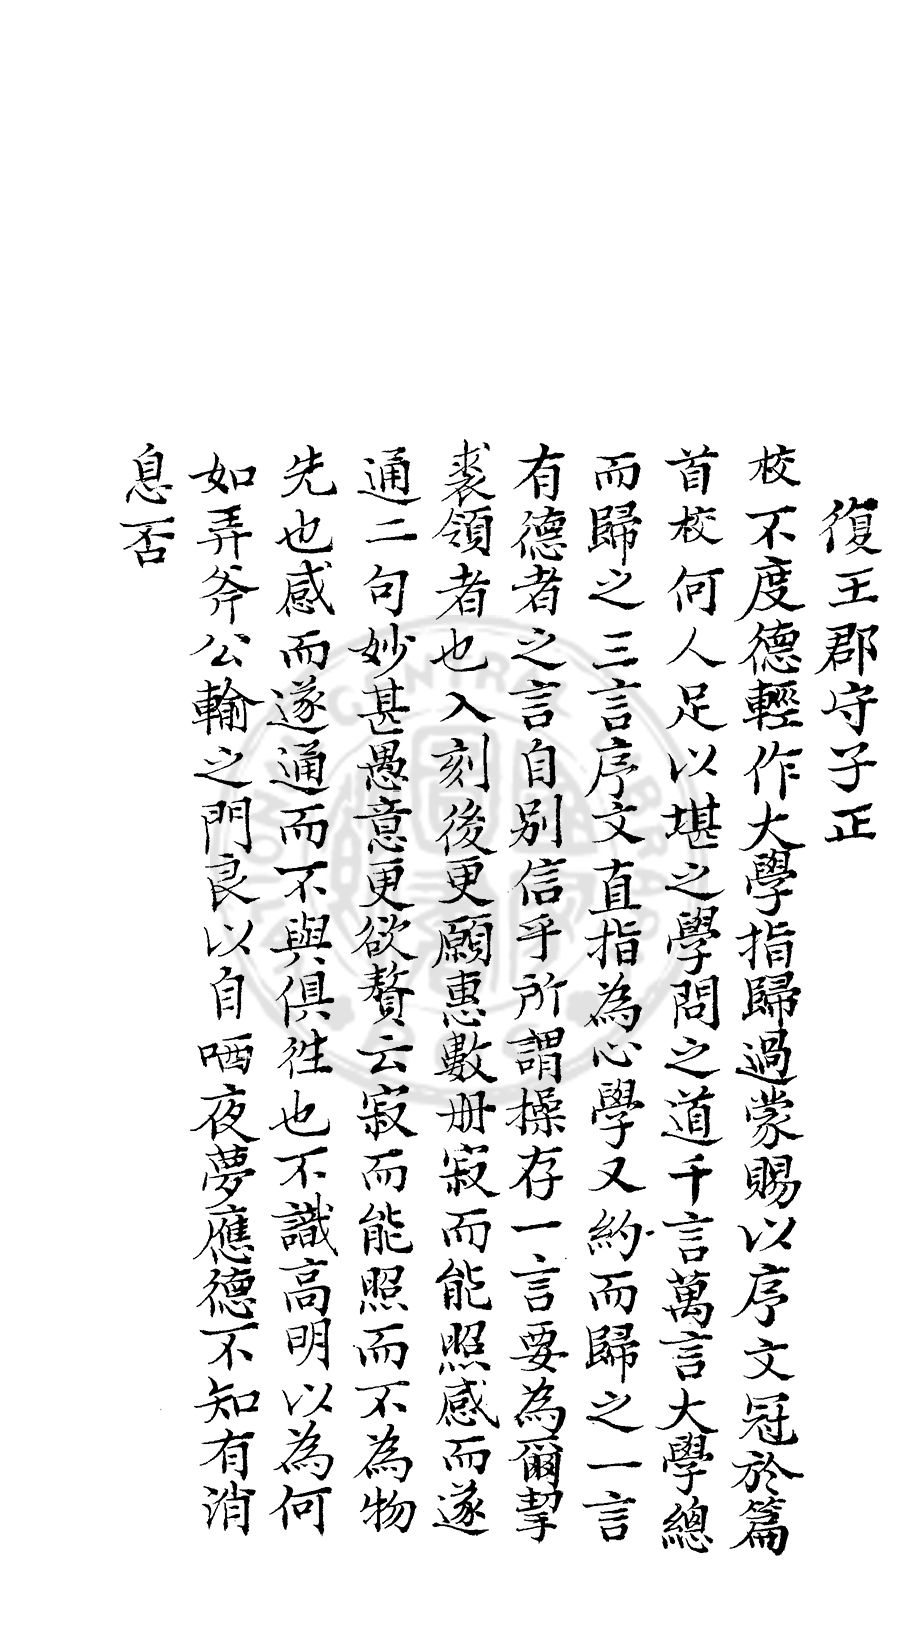 復王郡守子正
校不度德輕作大學指歸過蒙賜以序文冠於篇
首校何人足以堪之學問之道千言萬言大學總
而歸之三言序文直指為心學又約而歸之一言
有德者之言自別信乎所謂操存一言要為爾挈
裘領者也入刻後更願惠數册寂而能照感而遂
通二句妙甚愚意更欲贅云寂而能照而不為物
先也感而遂通而不與俱徃也不識高明以為何
如弄斧公輸之門良以自哂夜夢應德不知有消
息否